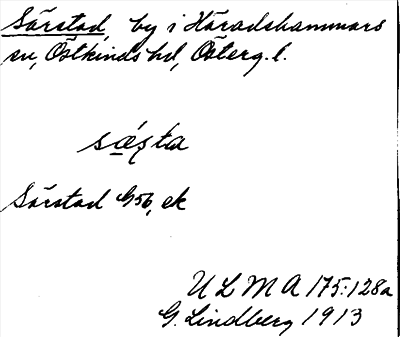 Särstad, by i Häradshammars
sn, Östkinds hd, Österg. l.
sǽ̲ṣta
Särstad G56, ek
U L M A 175:128a
G. Lindberg 1913